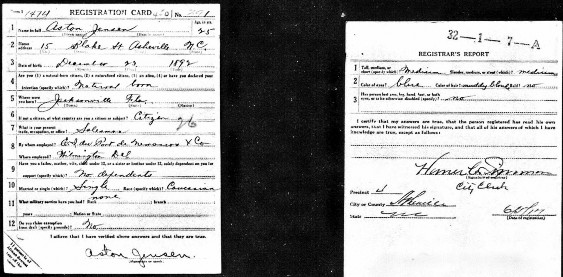 1474
REGISTRATION CARD
No.
1 Name in full Aston Jensen 25
2 Home address 15 Blake St Asheville N.C.
3 Date of birth December 23 1892
4 Are you (1) a natural-born citizen, (2) a naturalized citizen, (3) an alien, (4) or have you declared your
intention (specify which)? Natural born
5 Where were you born? Jacksonville Fla.
6 If not a citizen, of what country are you a citizen or subject? Citizen
7 What is your present trade, occupation, or office? Salesman
8 By whom employed? E.I. du Pont de Nemours & Co
Where employed? Wilmington Del
9 Have you a father, mother, wife, child under 12, or a sister or brother under 12, solely dependent on you for
support (specify which)? No dependents
10 Married or single (which)? Single Race (specify which)? Caucasian
11 What military service have you had? Rank none branch
years Nation or State
12 Do you claim exemption from draft (specify grounds)? No
I affirm that I have verified above answers and that they are true.
Aston Jensen
32-1-7-A
REGISTRAR'S REPORT
1 Tall, medium, or short (specify which)? Medium Slender, medium, or stout (which)? medium
2 Color of eyes? blue Color of hair? Bald? no
3 Has person lost arm, leg, hand, foot, or both eyes, or is he otherwise disabled (specify)? no
I certify that my answers are true, that the person registered has read his own
answers, that I have witnessed his signature, and that all of his answers of which I have
knowledge are true, except as follows:
(Signature of registrar)
City Clerk
Precinct
City or County
State NC
(Date of registration)